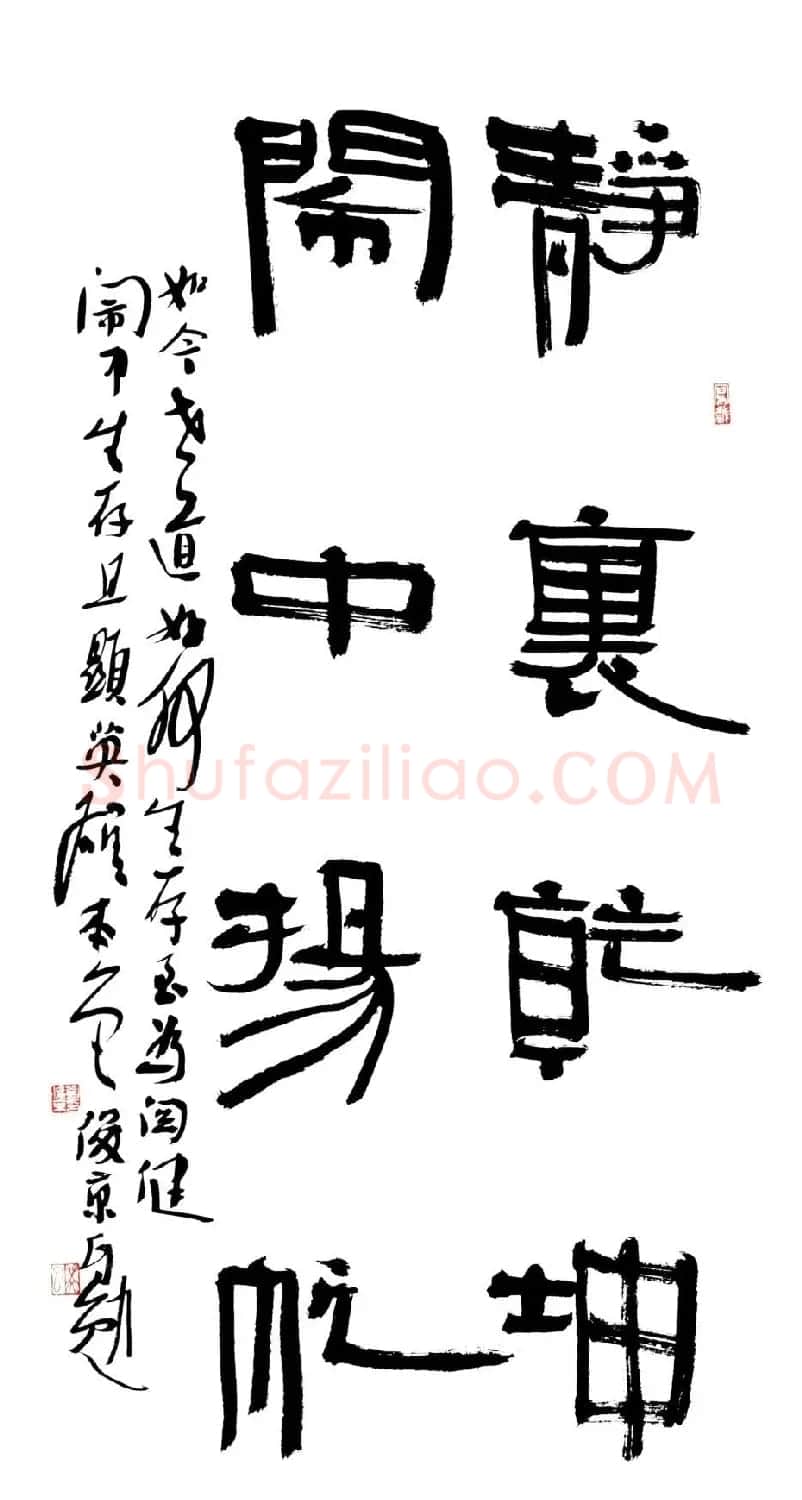 靜裏乾坤
鬧中揚帆
如今世道如何生存至為関健
鬧生存且顯英雄本色 俊京自勉
Shufaziliao.COM